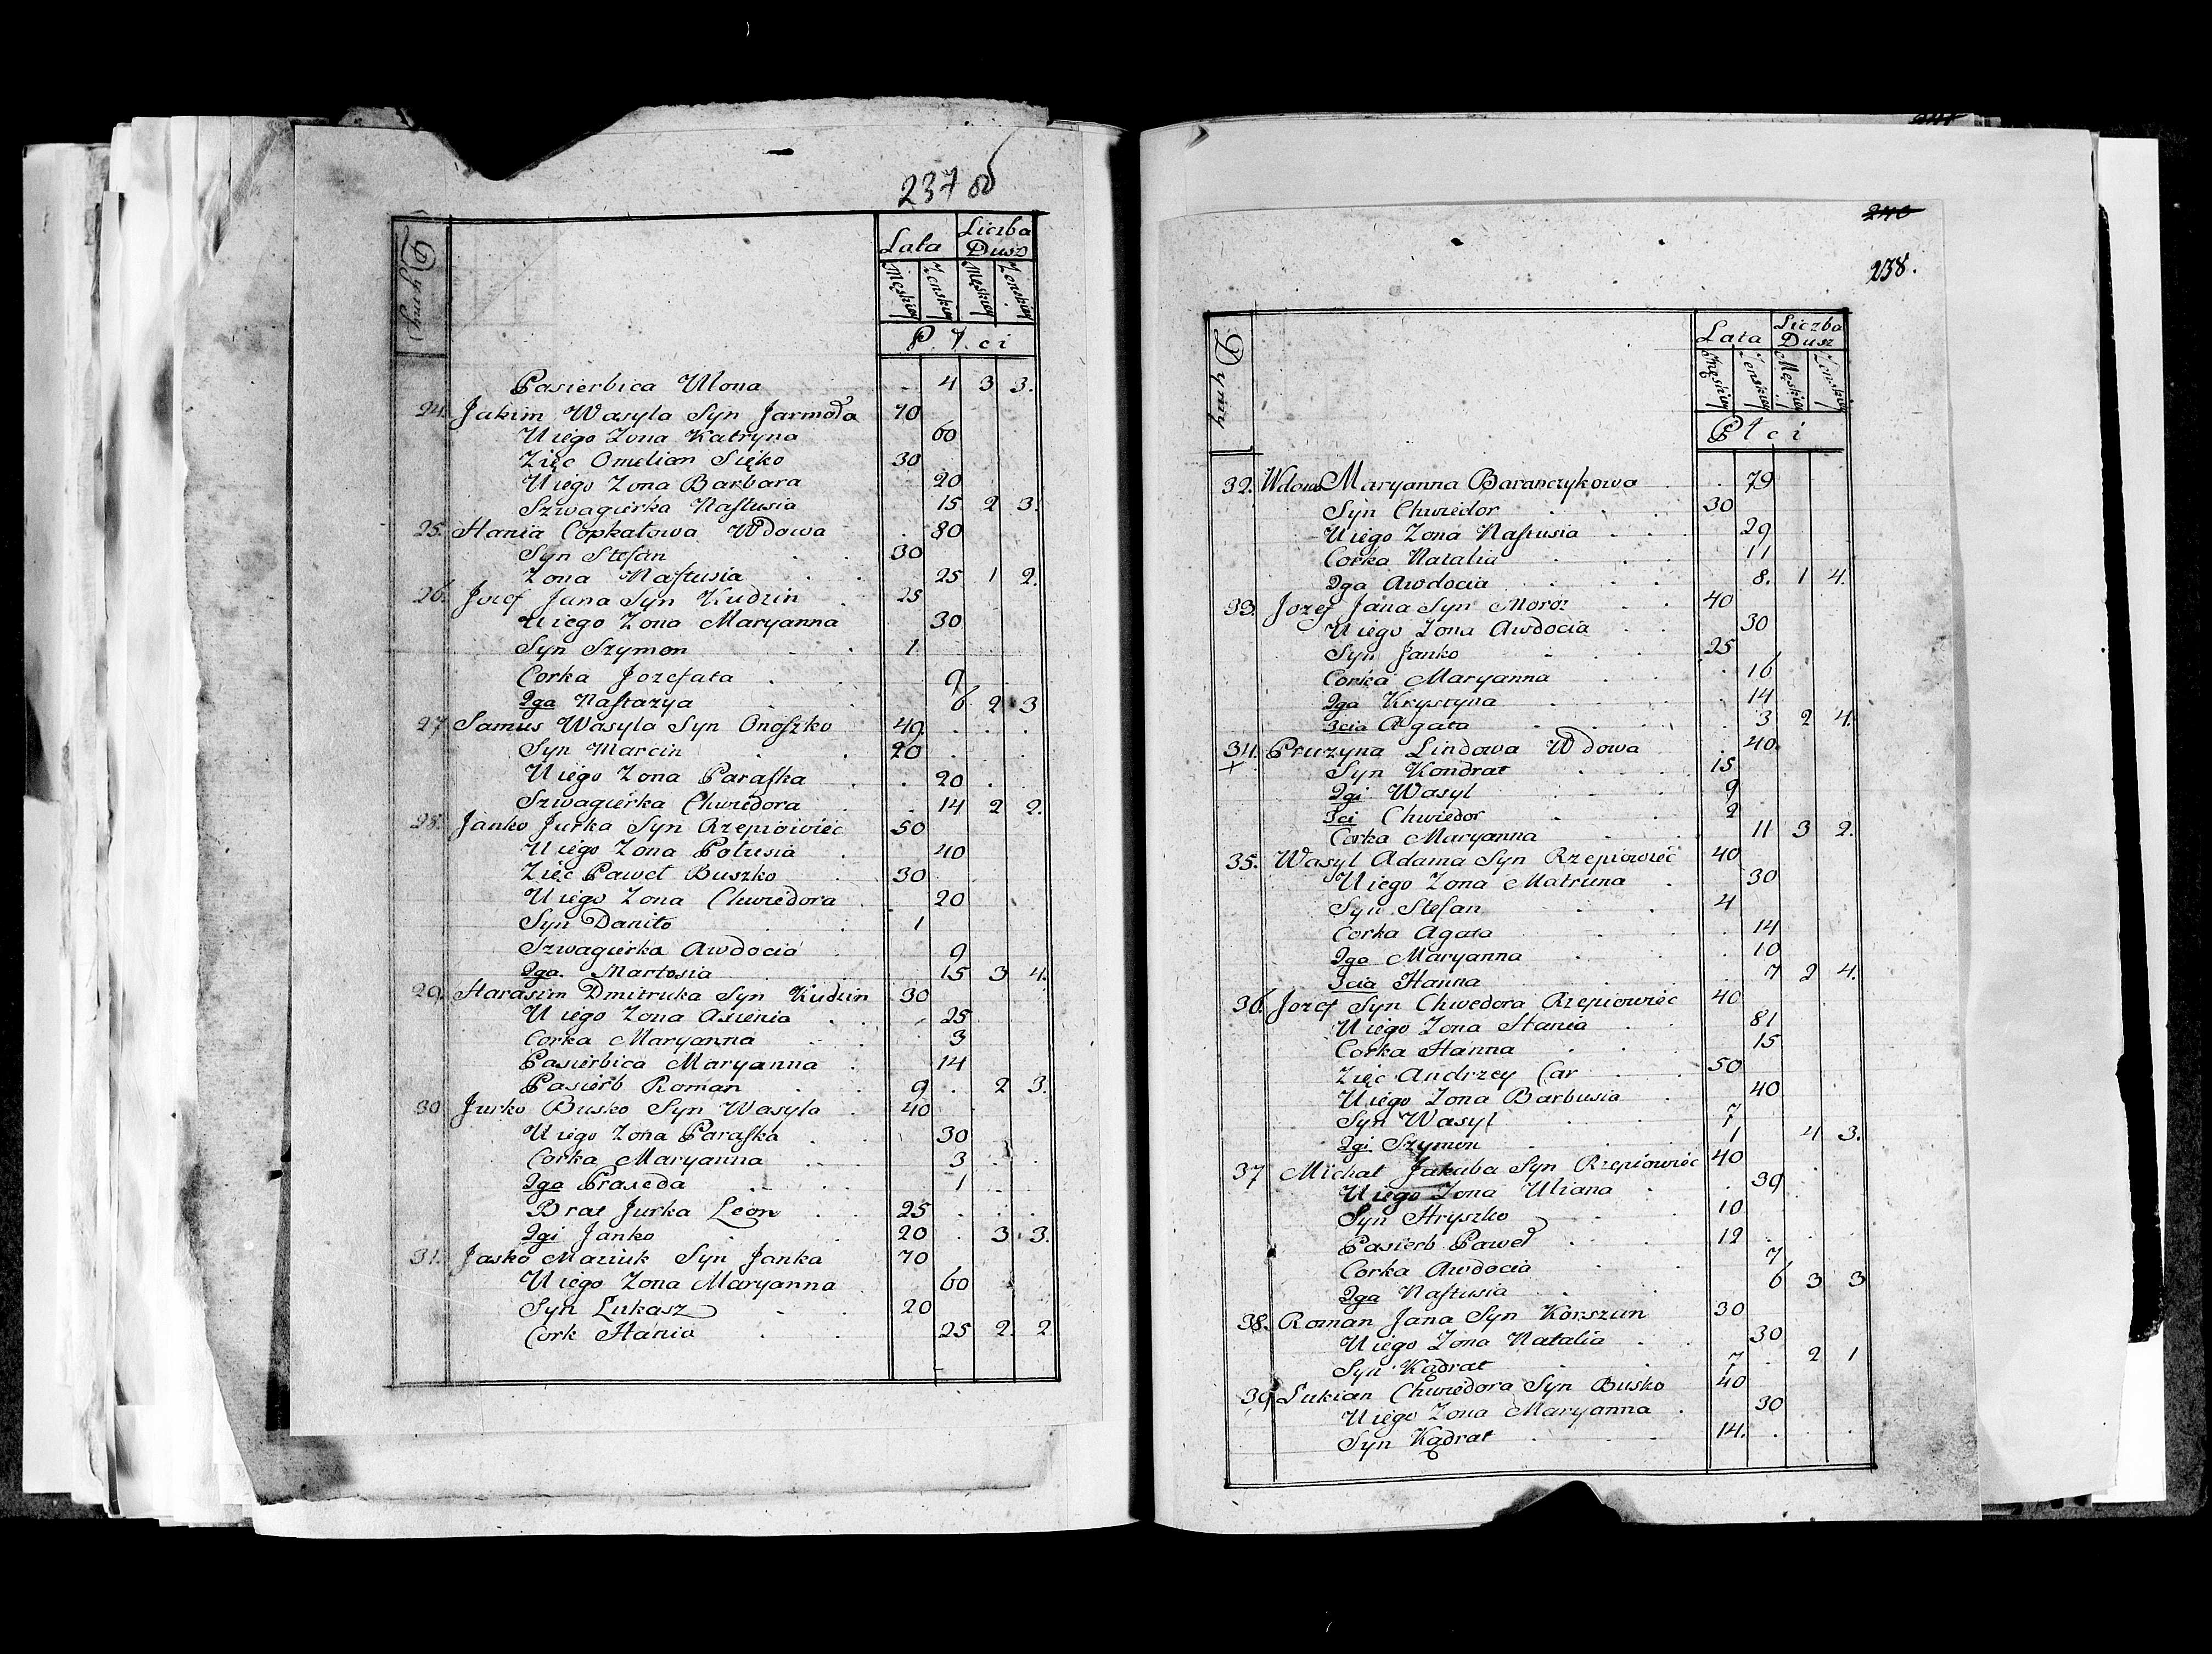 237 об
Dymy
Lata Liczba Dusz
Męskiey Zenskiey Męskiey Zenskiey
Płci
Pasierbica Ulona 4 3 3.
24. Jakim Wasyla Syn Jarmoła 70
U iego Zona Katryna 60
Zięc Omelian Sięko 30
U iego Zona Barbara 20
Szwagierka Nastusia 15 2 3.
25. Hania Copkałowa Wdowa 80
Syn Stefan 30
Zona Nastusia 25 1 2.
26. Jozef Jana Syn Kudzin 25
U iego Zona Maryanna 30
Syn Szymon 1.
Corka Jozefata 9
2ga Nastazya 6 2 3
27 Samus Wasyla Syn Onoszko 49.
Syn Marcin 20
U iego Zona Paraska 20
Szwagierka Chwiedora 14 2 2.
28. Janko Jurka Syn Rzepiowiec 50
U iego Zona Polusia 40
Zięc Paweł Buszko 30
U iego Zona Chwiedora 20
Syn Daniło 1
Szwagierka Awdocia 9
2ga Martosia 15 3 4.
29. Harasim Dmitruka Syn Kudzin 30
U iego Zona Asienia 25
Corka Maryanna 3
Pasierbica Maryanna 14
Pasierb Roman 9 2 3.
30 Jurko Busko Syn Wasyla 40
U iego Zona Paraska 30
Corka Maryanna 3
2ga Praseda 1
Brat Jurka Leon 25
2gi Janko 20 3 3.
31. Jasko Maziuk Syn Janka 70
U iego Zona Maryanna 60
Syn Łukasz 20
Cork Hania 25 2. 2
240
238.
Dymy
Lata Liczba Dusz
Męskiey Zenskiey Męskiey Zenskiey
Płci
32. Wdowa Maryanna Baranczykowa 79
Syn Chwiedor 30
U iego Zona Nastusia 29
Corka Natalia 11
2ga Awdocia 8. 1 4.
33. Jozef Jana Syn Moroz 40
U iego Zona Awdocia 30
Syn Janko 25
Corka Maryanna 16
2ga Krystyna 14
3cia Agata 3 2 4.
34. Pruzyna Lindowa Wdowa 40
Syn Kondrat 15
2gi Wasyl 9
3ci Chwiedor 2
Corka Maryanna 11 3 2.
35. Wasyl Adama Syn Rzepiowiec 40
U iego Zona Matruna 30
Syn Stefan 4
Corka Agata 14
2ga Maryanna 10
3cia Hanna 7 2 4.
36. Jozef Syn Chwedora Rzepiowiec 40
U iego Zona Hania 81
Corka Hanna 15
Zięc Andrzey Car 50
U iego Zona Barbusia 40
Syn Wasyl 7
2gi Szymon 1 4 3.
37 Michał Jakuba Syn Rzepiowiec 40
U iego Zona Uliana 39
Syn Hryszko 10
Pasierb Paweł 12
Corka Awdocia 7
2ga Nastusia 6 3 3
38. Roman Jana Syn Korszun 30
U iego Zona Natalia 30
Syn Kądrat 7 2 1
39 Łukian Chwiedora Syn Busko 40
U iego Zona Maryanna 30
Syn Kądrat 14.